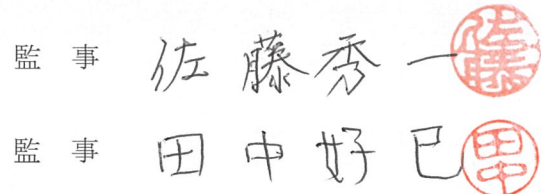 監事 佐藤秀一 佐藤
監事 田中好巳 田中